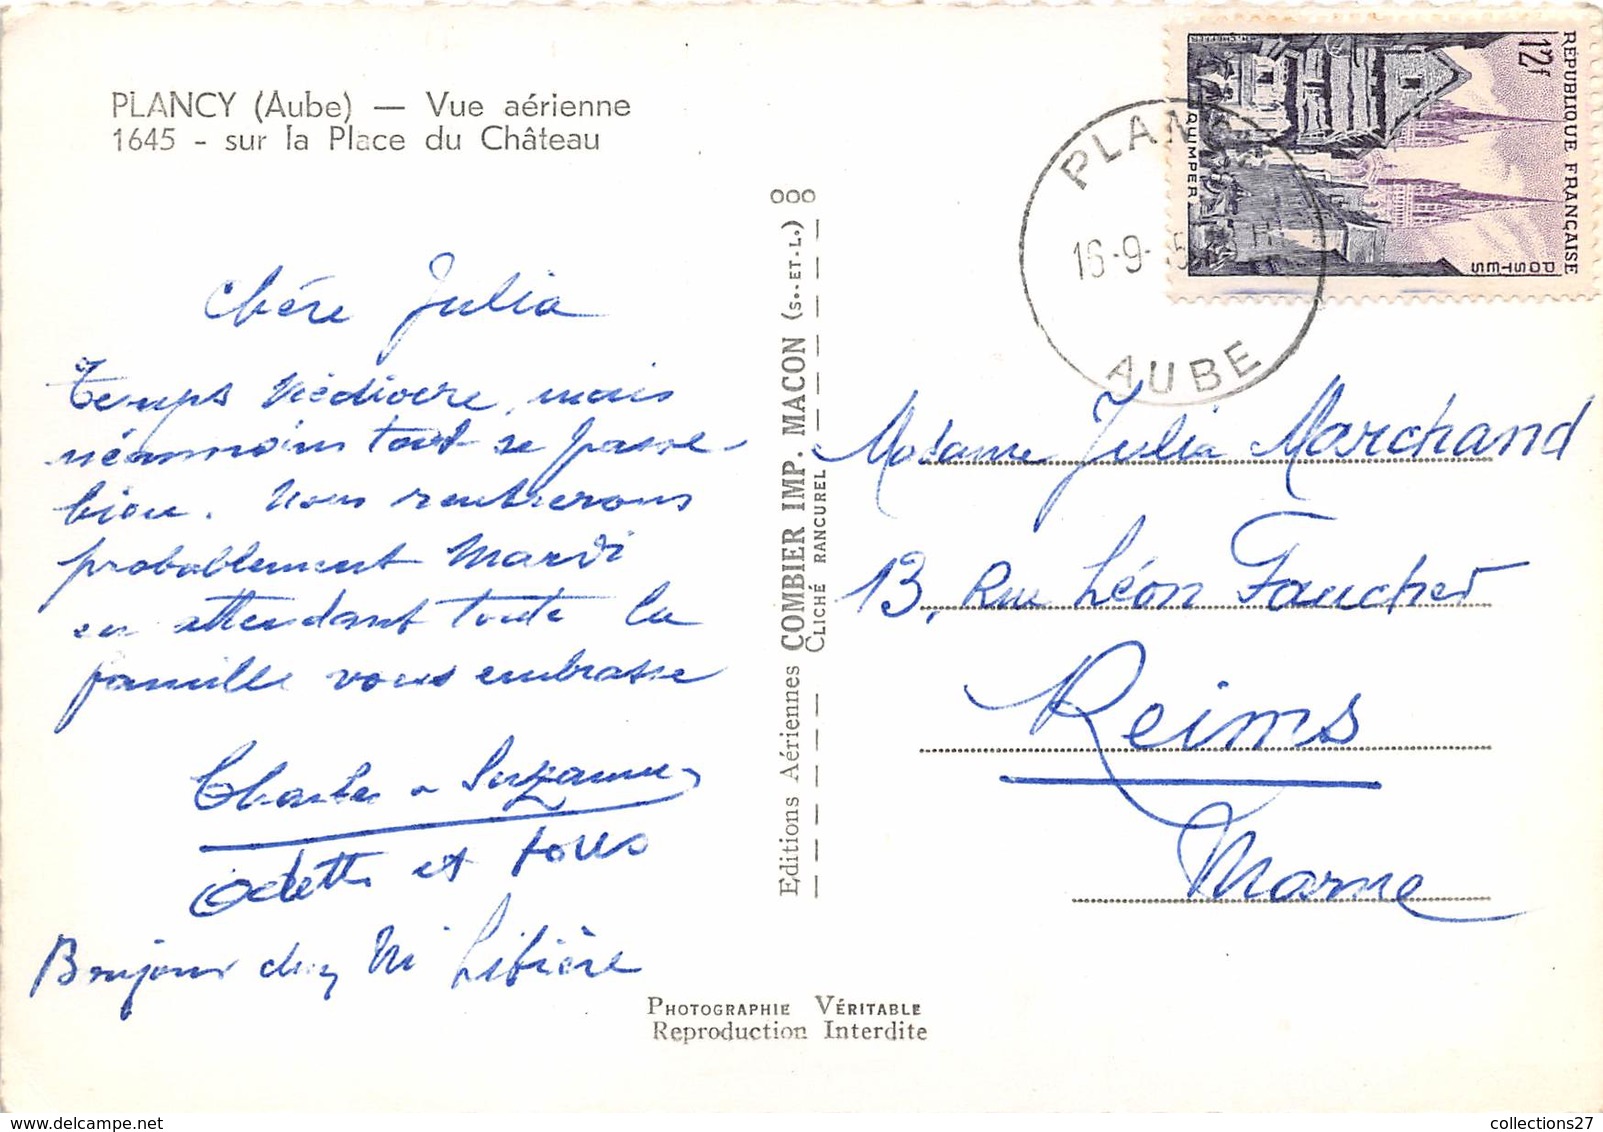 PLANCY (Aube) — Vue aérienne
1645 - sur la Place du Château
Chère Julia
Temps médiocre, mais
néanmoins tout se passe
bien. Nous rentrerons
probablement Mardi
en attendant toute la
famille vous embrasse
Charles Suzanne
Odette et tous
Bonjour chez M
Editions Aériennes COMBIER IMP. MACON (S.-ET-L.)
CLICHÉ RANCUREL
PHOTOGRAPHIE VÉRITABLE
Reproduction Interdite
RÉPUBLIQUE FRANÇAISE
12f
POSTES
QUIMPER
PLANCY
16-9-5
AUBE
Madame Julia Marchand
13, Rue Léon Faucher
Reims
Marne
collections27